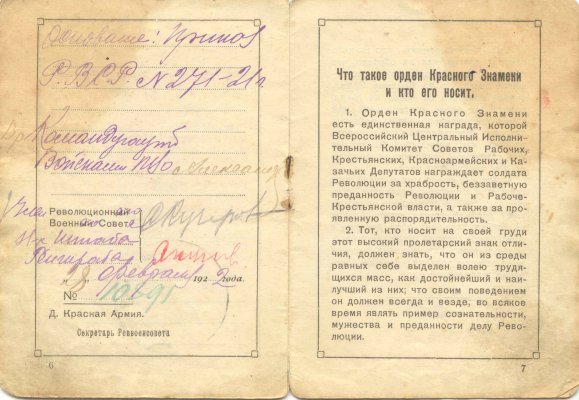 Основание: Приказ
Р.В.С.Р. № 271-21 г.
Командующий
Войсками
Революционный
Военный Совет
Штаба
8 Февраля 1922 года.
№
Д. Красная Армия.
Секретарь Реввоенсовета
6
Что такое орден Красного Знамени
и кто его носит.
1. Орден Красного Знамени
есть единственная награда, которой
Всероссийский Центральный Исполни-
тельный Комитет Советов Рабочих,
Крестьянских, Красноармейских и Ка-
зачьих Депутатов награждает солдата
Революции за храбрость, беззаветную
преданность Революции и Рабоче-
Крестьянской власти, а также за про-
явленную распорядительность.
2. Тот, кто носит на своей груди
этот высокий пролетарский знак отли-
чия, должен знать, что он из среды
равных себе выделен волею трудя-
щихся масс, как достойнейший и наи-
лучший из них; что своим поведением
он должен всегда и везде, во всякое
время являть пример сознательности,
мужества и преданности делу Рево-
люции.
7